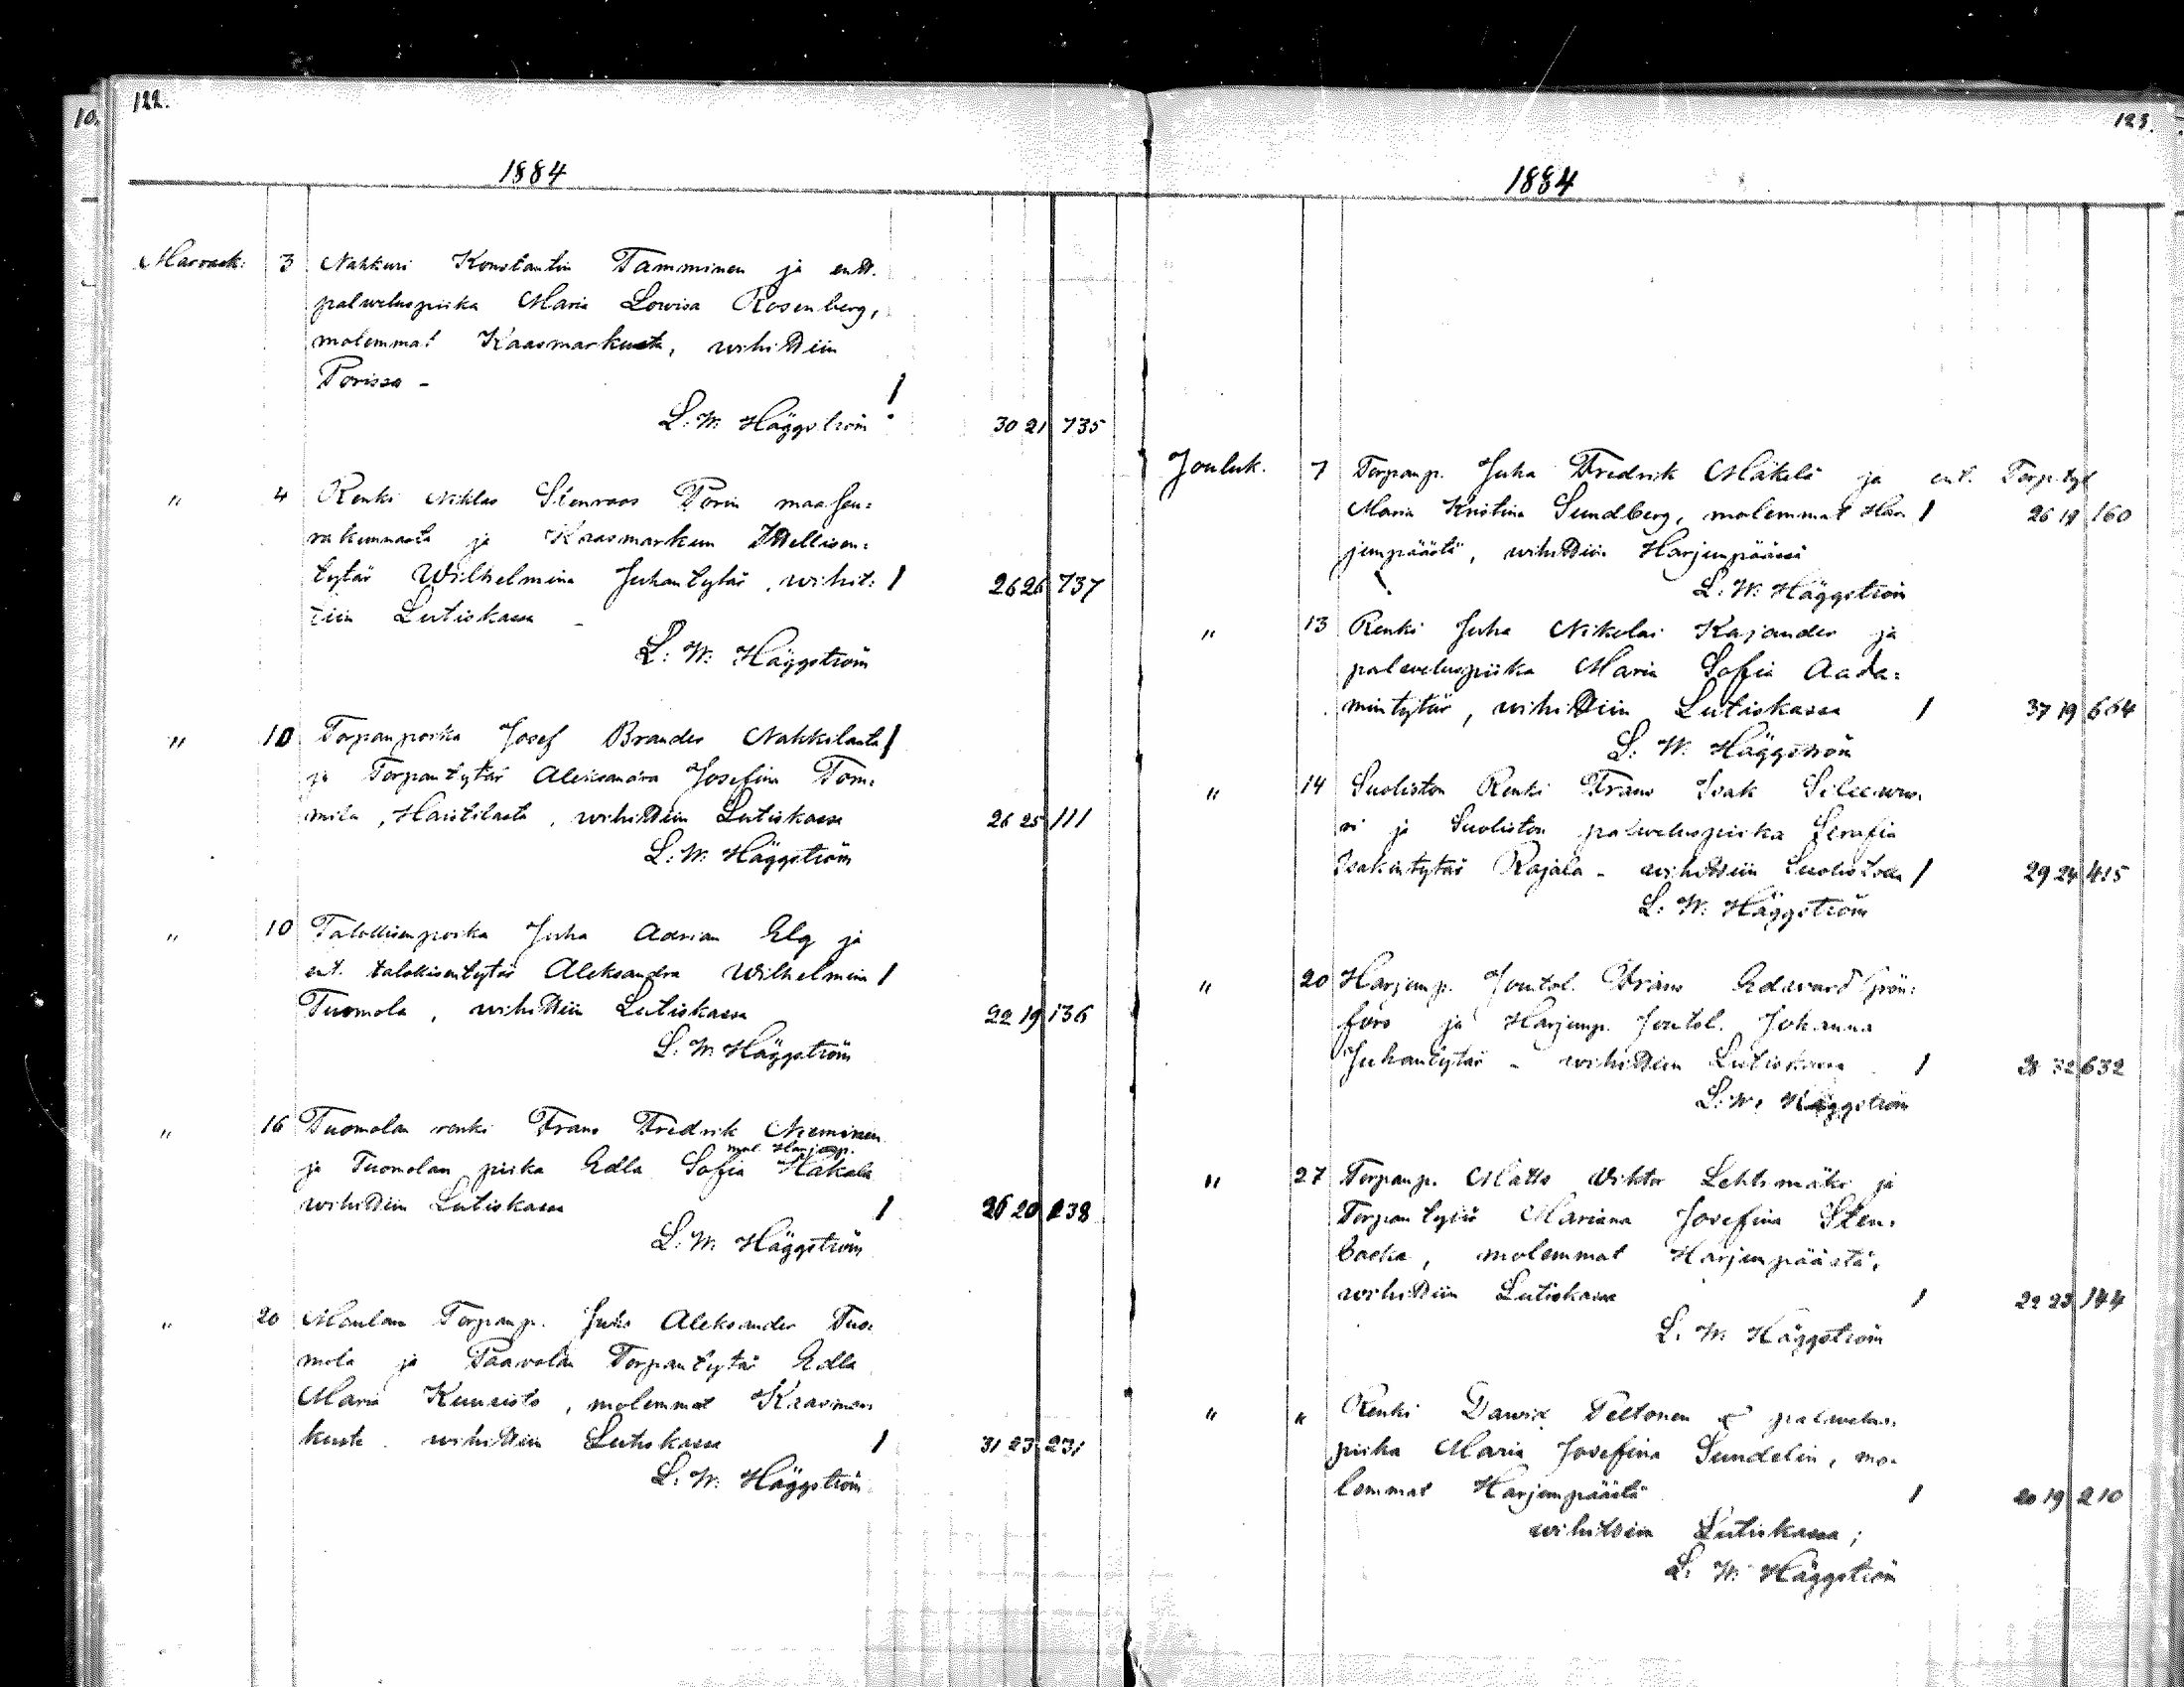 10.
122.
1884
Marrask. 3 Nahkuri Konstantin Tamminen ja entt.
palweluspiika Maria Lowisa Rosenberg,
molemmat Kaasmarkusta, wihittiin
Porissa -
L. W. Häggström 30 21 735
" 4 Renki Niklas Stenroos Porin maaseu=
rakunnasta ja Kaasmarkun Itellisen=
tytär Wilhelmina Juhantytär, wihit= 26 26 737
tiin Lutiskassa -
L: W: Häggström
" 10 Torpanpoika Josef Brander Nakkilasta
ja Torpantytär Aleksandra Josefina Tom=
mila, Haistilasta, wihittiin Lutiskassa 26 25 111
L: W: Häggström
" 10 Talollisenpoika Juha Adrian Elg ja
ent. talollisentytär Aleksandra Wilhelmina
Tuomola, wihittiin Lutiskassa 22 19 136
L. W. Häggström
" 16 Tuomolan renki Frans Fredrik Nieminen
mol. Harjunp.
ja Tuomolan piika Edla Sofia Hakala
wihittiin Lutiskassa 26 20 238
L. W. Häggström
" 20 Torpanp. Juho Aleksander Tuo=
mola ja Paavolan Torpantytär Edla
Maria Kuusisto, molemmat Kaasmar=
kusta wihittiin Lutiskassa 31 23 231
L. W. Häggström
123.
1884
Jouluk. 7 Torpanp. Juha Fredrik Mäkelä ja ent. Torp.tyt
Maria Kristina Sundberg, molemmat Har 26 19 160
junpäästä, wihittiin Harjunpäässä
L. W. Häggström
" 13 Renki Juha Nikolai Kajander ja
palweluspiika Maria Sofia Aada=
mintytär, wihittiin Lutiskassa 37 19 664
L. W. Häggström
" 14 Suoliston Renki Frans Isak
ja Suoliston palweluspiika Serafia
Isakintytär Rajala - wihittiin Suolistossa 29 24 415
L: W: Häggström
" 20 Harjunp. Frans Edward Grön=
fors ja Harjunp. Johanna
Juhantytär - wihittiin Lutiskassa 32 632
L. W. Häggström
" 27 Torpanp. Matts Viktor Lehtimäki ja
Torpantytär Mariana Josefina Sten=
backa, molemmat Harjunpäästä,
wihittiin Lutiskassa 22 23 144
L. W. Häggström
" " Renki Dawid Peltonen & palwelus=
piika Maria Josefina Sundelin, mo=
lemmat Harjunpäästä 20 19 210
wihittiin Lutiskassa;
L. W. Häggström